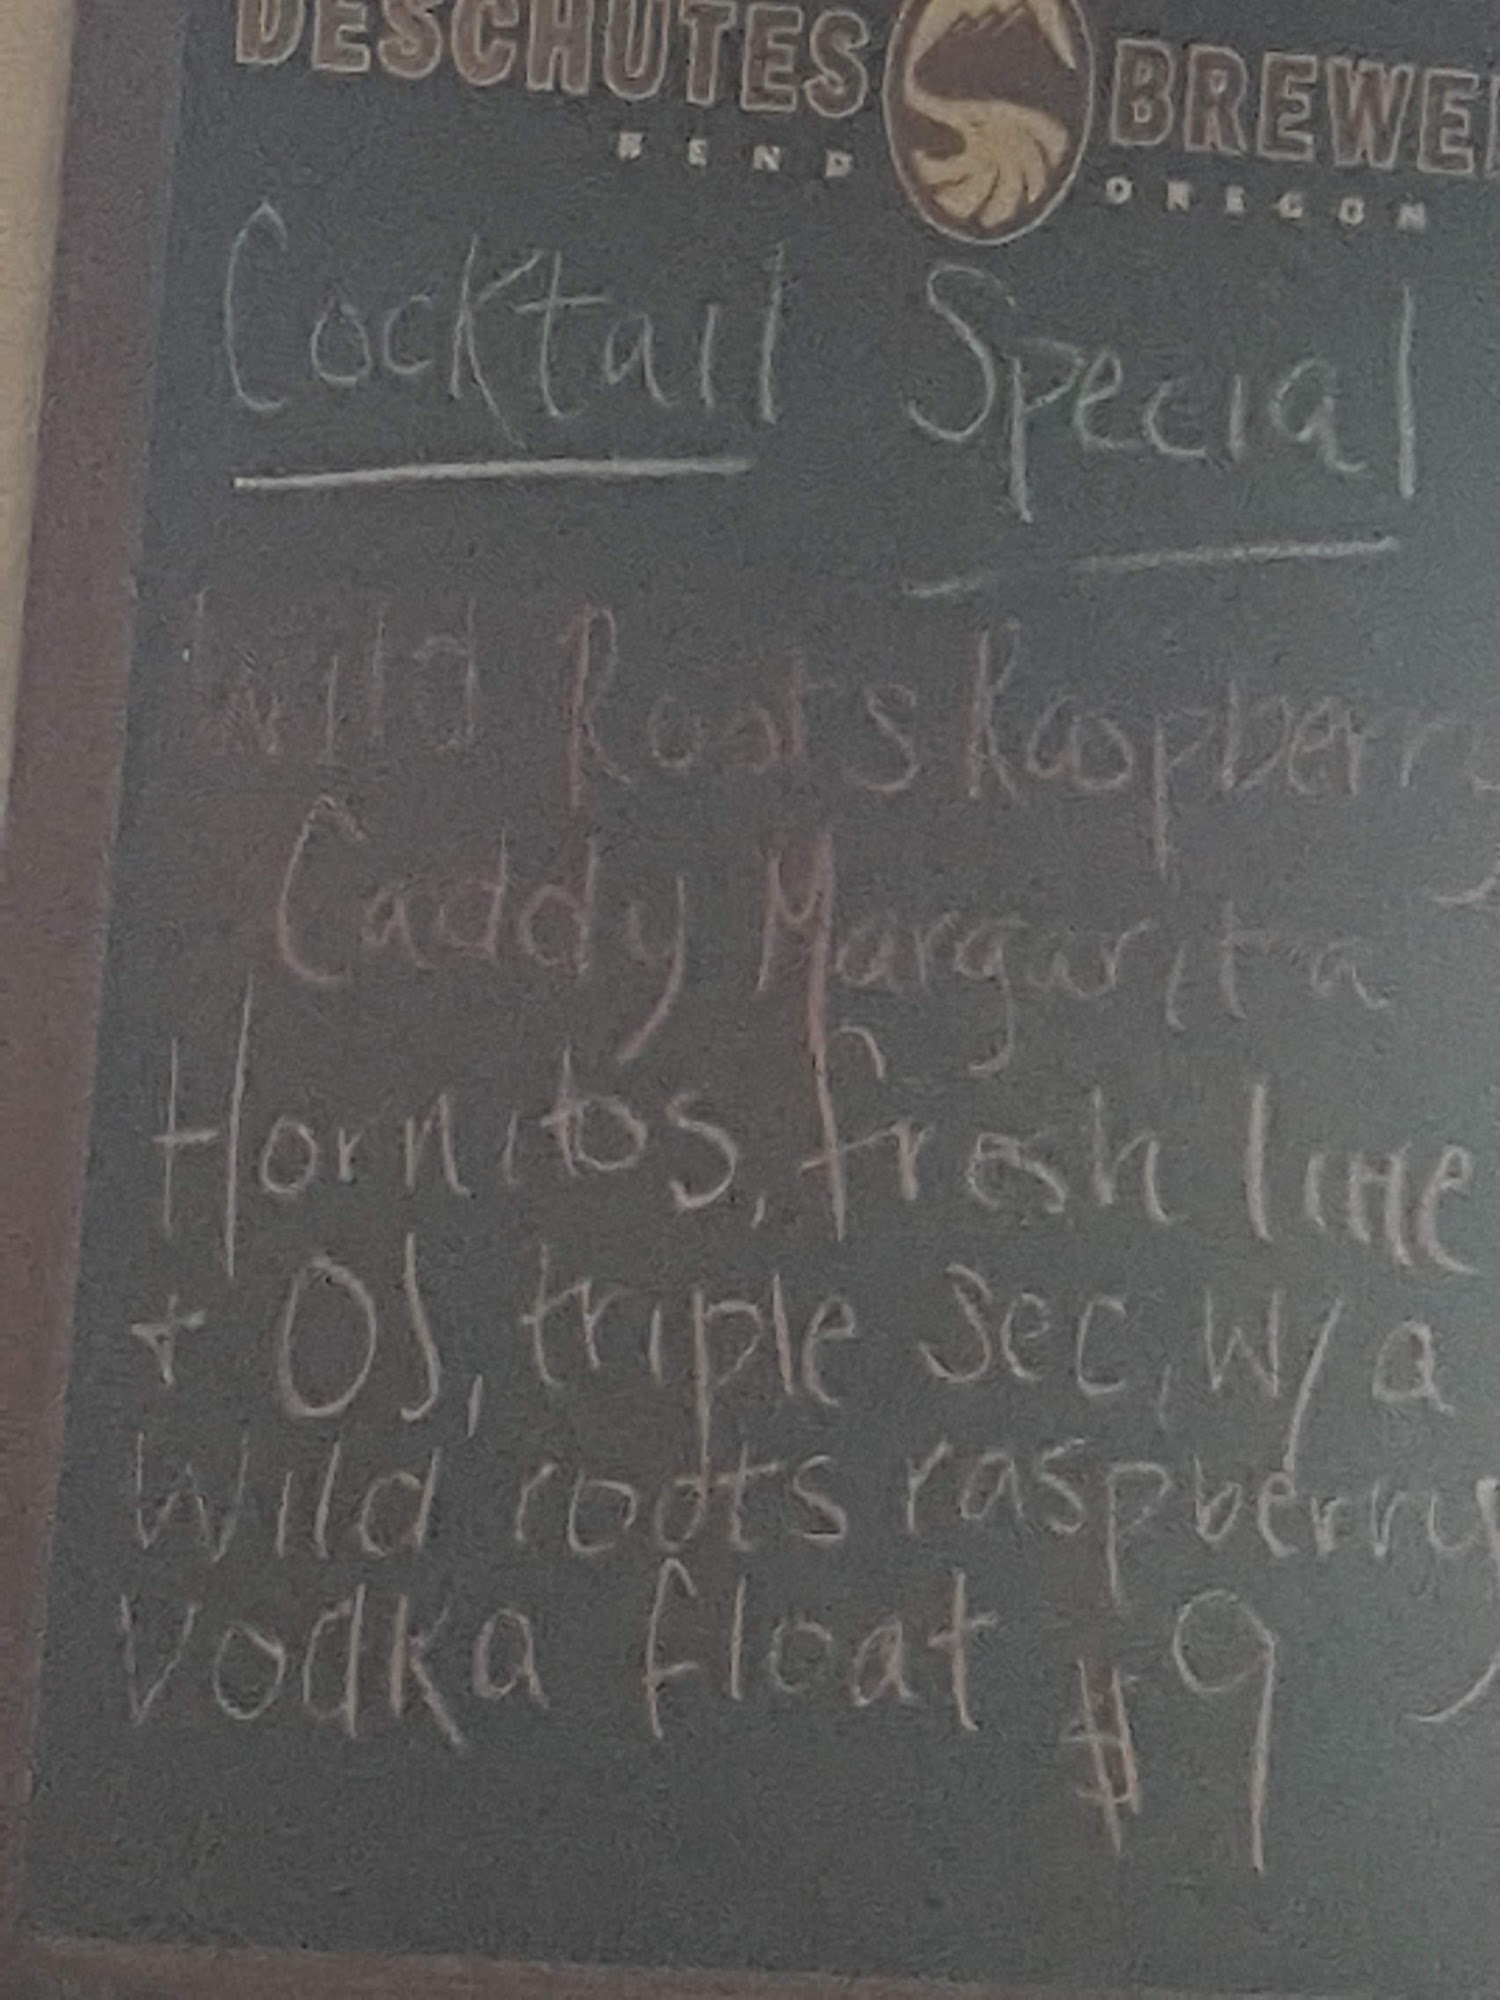 DESCHUTES BREWE
BEND OREGON
Cocktail Special
Wild Roots Raspberry
Caddy Margarita
Hornitos, fresh lime
+ OJ, triple sec, w/ a
Wild roots raspberry
vodka float $9